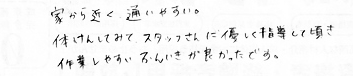 家から近く通いやすい。
体けんしてみて、スタッフさんに優しく指導して頂き
作業しやすいふんいきが良かったです。